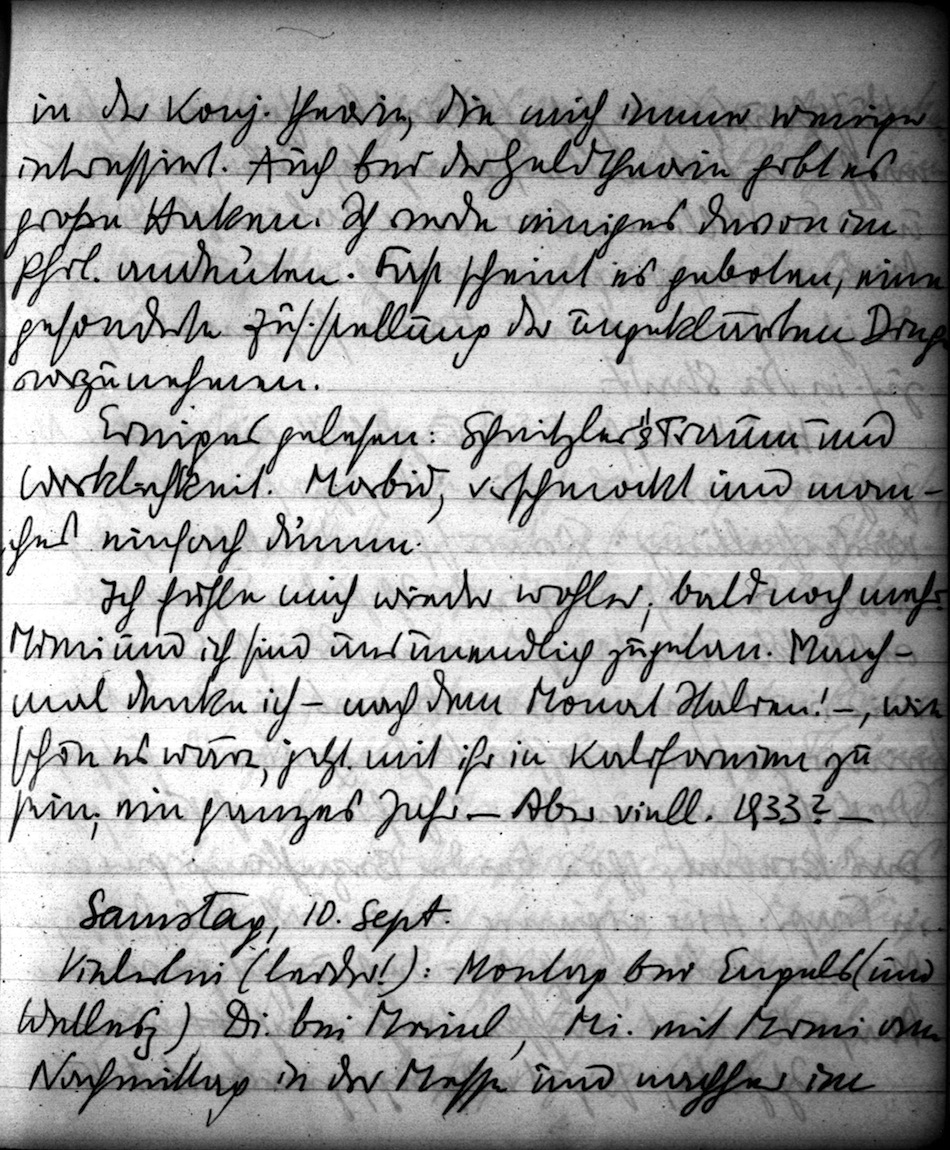 in der Konj. theorie, die mich immer weniger
interessiert. Auch bei der Geldtheorie gibt es
große Haken. Ich werde einiges davon im
Phil. andeuten. Fast scheint es geboten, eine
gesonderte Zus.stellung der ungeklärten Dinge
vorzunehmen.
Einiges gelesen: Schnitzler's Traum und
Wirklichkeit. Morbid, verschmockt und man-
ches einfach dumm.
Ich fühle mich wieder wohler, bald noch mehr
Mimi und ich sind uns unendlich zugetan. Manch-
mal denke ich – nach dem Monat Italien! –, wie
schön es wäre, jetzt mit ihr in Kalifornien zu
sein; ein ganzes Jahr. – Aber viell. 1933? –
Samstag, 10. Sept.
Vielerlei (leider!): Montag bei Engels (und
Wellesz) Di. bei Meinl, Mi. mit Mimi am
Nachmittag in der Messe und nachher im